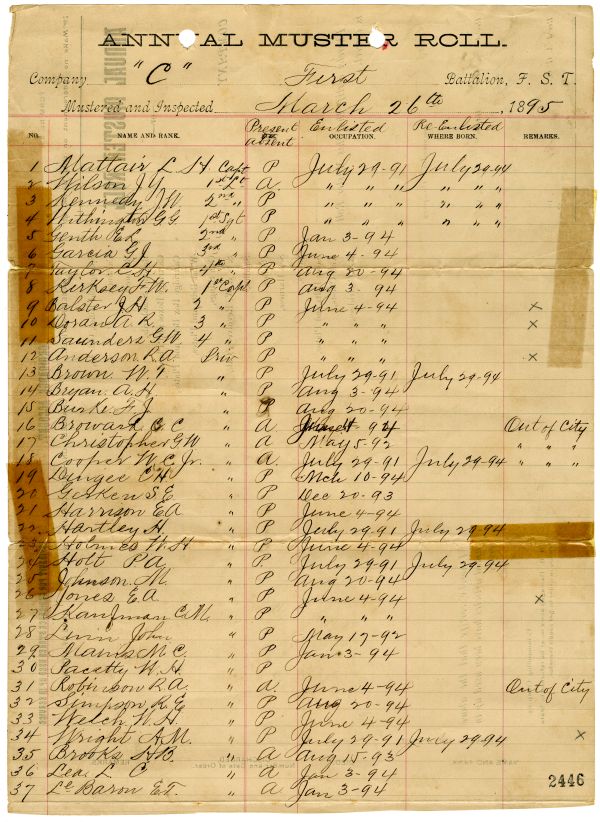 ANNUAL MUSTER ROLL.
Company "C" First Battalion, F. S. T.
Mustered and Inspected March 26th, 1895
NO. NAME AND RANK. Present or absent Enlisted OCCUPATION. Re-Enlisted WHERE BORN. REMARKS.
1 Mattair L H Capt P July 29-91 July 29-94
2 Wilson J Y 1st Lt A. " " " " " "
3 Kennedy J W 2nd " P " " " " " "
4 Withington G G. 1st Sgt P " " " " " "
5 Genth E R 2nd " P Jan 3-94
6 Garcia G J. 3rd " P June 4-94
7 Taylor C H. 4th " P Aug 20-94
8 Kirksey F W. 1st Corpl P Aug 3-94
9 Balster J H. 2 " P June 4-94 x
10 Doran A. K. 3 " P " " " x
11 Saunders G W 4 " P " " "
12 Anderson R A Priv P " " " x
13 Brown W. T " P July 29-91 July 29-94
14 Bryan A. H " P Aug 3-94
15 Burke F. J. " P Aug 20-94
16 Broward C C " A 94 Out of City
17 Christopher G W " A May 5-92 " " "
18 Cooper W. C. Jr. " A. July 29-91 July 29-94 " " "
19 Dingee C H. " P Mch 10-94
20 Gerken S E " P Dec 20-93
21 Harrison E A " P June 4-94
22 Hartley H. " P July 29-91 July 29-94
23 Holmes W. H " P June 4-94
24 Holt P A. " P July 29-91 July 29-94
25 Johnson M. " P Aug 20-94
26 Jones E A " P June 4-94 x
27 Kaufman C. M. " P " " "
28 Linn John " P May 17-92
29 Mains M. C. " P Jan 3-94
30 Pacetty W. H. " P
31 Robinson R A. " A. June 4-94 Out of City
32 Simpson R. E " P Aug 20-94
33 Welch W. H " P June 4-94
34 Wright A. M. " P July 29-91 July 29-94 x
35 Brooks H B. " A Aug 15-93
36 Lea L C " A Jan 3-94
37 Le Baron E. F. " A Jan 3-94
2446